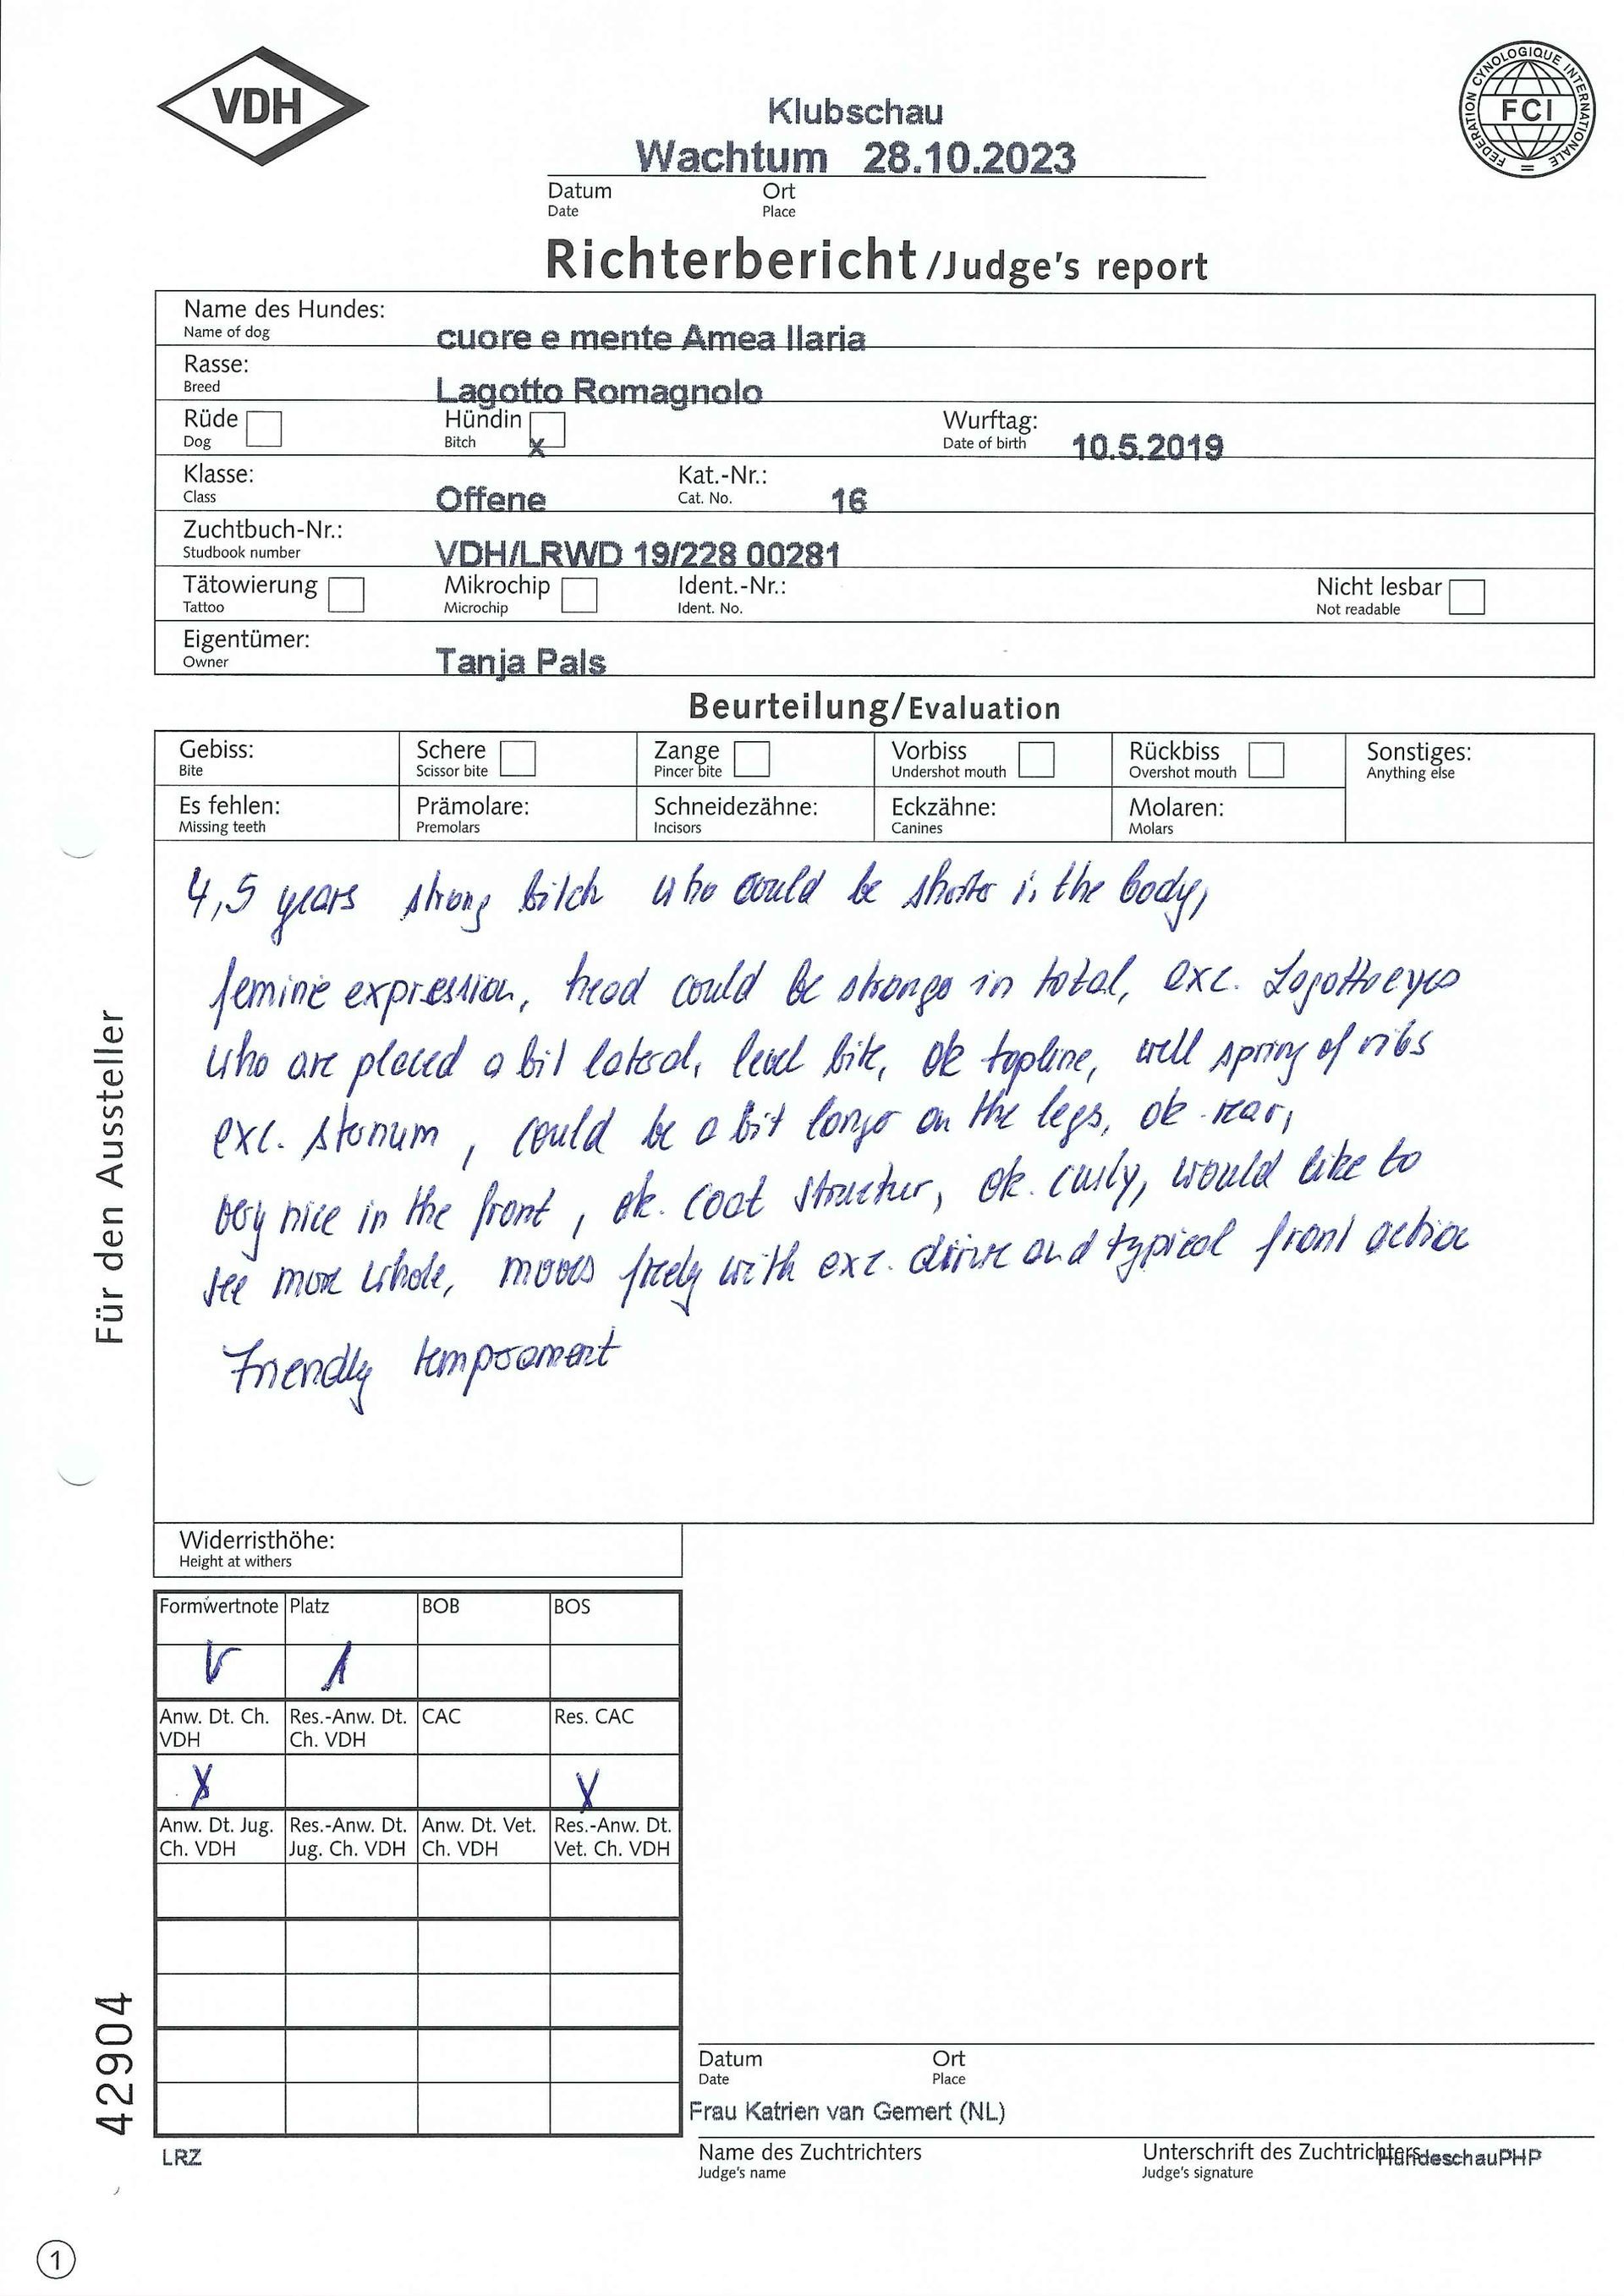 VDH
FEDERATION CYNOLOGIQUE INTERNATIONALE
FCI
Klubschau
Wachtum 28.10.2023
Datum Ort
Date Place
Richterbericht/Judge's report
Name des Hundes:
Name of dog
cuore e mente Amea Ilaria
Rasse:
Breed
Lagotto Romagnolo
Rüde Hündin Wurftag:
Dog Bitch x Date of birth 10.5.2019
Klasse: Kat.-Nr.:
Class Offene Cat. No. 16
Zuchtbuch-Nr.:
Studbook number
VDH/LRWD 19/228 00281
Tätowierung Mikrochip Ident.-Nr.: Nicht lesbar
Tattoo Microchip Ident. No. Not readable
Eigentümer:
Owner
Tanja Pals
Beurteilung/Evaluation
Gebiss: Schere Zange Vorbiss Rückbiss Sonstiges:
Bite Scissor bite Pincer bite Undershot mouth Overshot mouth Anything else
Es fehlen: Prämolare: Schneidezähne: Eckzähne: Molaren:
Missing teeth Premolars Incisors Canines Molars
4,5 years strong bitch who could be shorter in the body,
feminie expression, head could be stronger in total, exc. Lagotto eyes
who are placed a bit lateral, level bite, ok topline, well spring of ribs
exc. sternum, could be a bit longer on the legs, ok rear,
very nice in the front, ok. coat structur, ok. curly, would like to
see more whole, moves freely with exc. drive and typical front action
Friendly temperament
Für den Aussteller
Widerristhöhe:
Height at withers
Formwertnote Platz BOB BOS
V 1
Anw. Dt. Ch. Res.-Anw. Dt. CAC Res. CAC
VDH Ch. VDH
X X
Anw. Dt. Jug. Res.-Anw. Dt. Anw. Dt. Vet. Res.-Anw. Dt.
Ch. VDH Jug. Ch. VDH Ch. VDH Vet. Ch. VDH
42904
Datum Ort
Date Place
Frau Katrien van Gemert (NL)
LRZ
Name des Zuchtrichters Unterschrift des Zuchtrichters HundeschauPHP
Judge's name Judge's signature
1